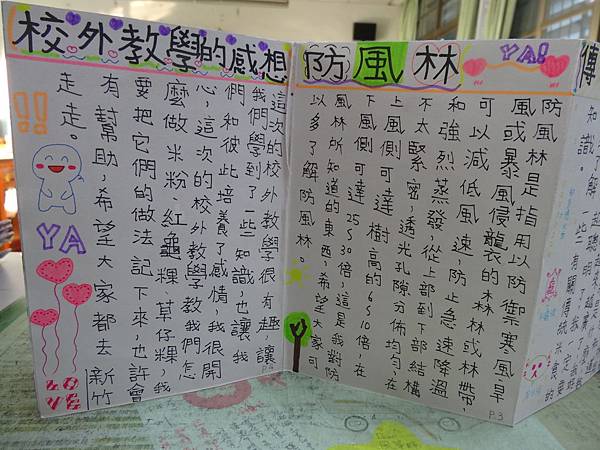 傳
知識。
防風林
YA!
防風林是指用以防禦寒風、旱
風或暴風侵襲的森林或林帶,
可以減低風速,防止急速降溫
和強烈蒸發,從上部到下部結構
不太緊密,透光孔隙分佈均勻,在
上風側可達樹高的6~10倍,在
下風側可達25~30倍,這是我對防
風林所知道的東西,希望大家可
以多了解防風林。
P.3
校外教學的感想
這次的校外教學很有趣,讓
我們學到了一些知識,也讓我
們和彼此培養了感情,我很開
心,這次的校外教學教我們怎
麼做米粉、紅龜粿、草仔粿,我
要把它們的做法記下來,也許會
有幫助,希望大家都去新竹
走走。
!!
YA